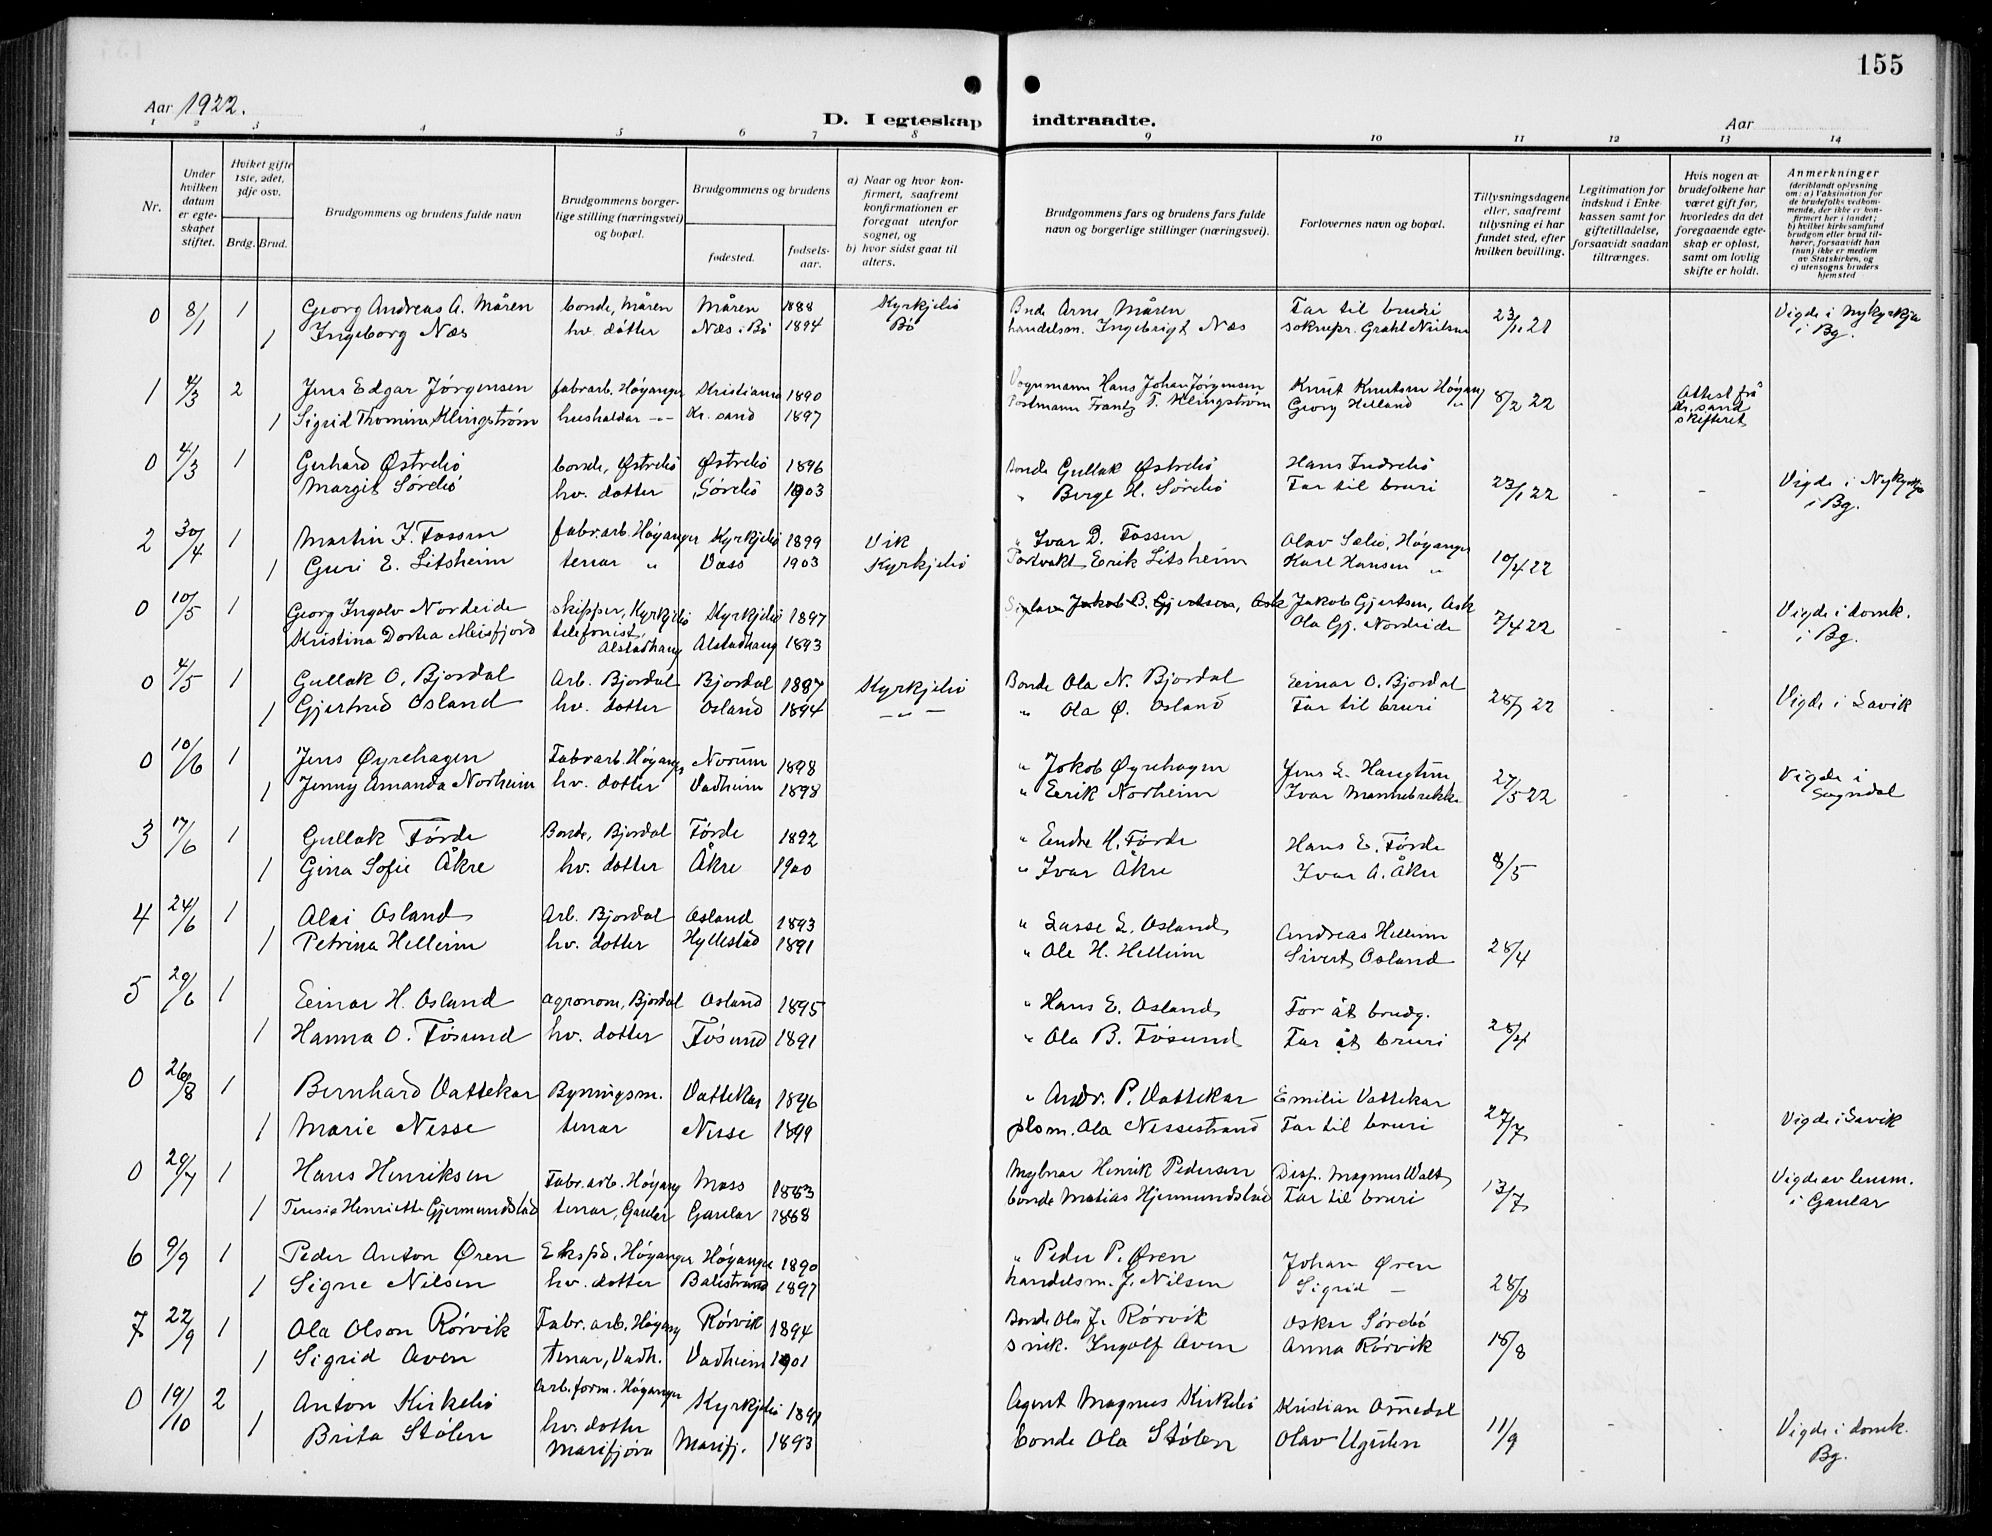 155
Aar 1922.
D. I egteskap indtraadte.
Aar
1 2 3 4 5 6 7 8 9 10 11 12 13 14
Nr.
Under hvilken datum er egteskapet stiftet.
Hviket gifte 1ste, 2det, 3dje osv.
Brdg. Brud.
Brudgommens og brudens fulde navn
Brudgommens borgerlige stilling (næringsvei) og bopæl.
Brudgommens og brudens
fødested.
fødselsaar.
a) Naar og hvor konfirmert, saafremt konfirmationen er foregaat utenfor sognet, og
b) hvor sidst gaat til alters.
Brudgommens fars og brudens fars fulde navn og borgerlige stillinger (næringsvei).
Forlovernes navn og bopæl.
Tillysningsdagene eller, saafremt tillysning ei har fundet sted, efter hvilken bevilling.
Legitimation for indskud i Enkekassen samt for giftetilladelse, forsaavidt saadan tiltrænges.
Hvis nogen av brudefolkene har været gift før, hvorledes da det foregaaende egteskap er opløst, samt om lovlig skifte er holdt.
Anmerkninger (deriblandt oplysning om: a) Vaksination for de brudefolks vedkommende, der ikke er konfirmert her i landet; b) hvilket kirkesamfund brudgom eller brud tilhører, forsaavidt han (hun) ikke er medlem av Statskirken, og c) utensogns bruders hjemsted
0 8/1 1 Georg Andreas A. Måren bonde, Måren Måren 1888 Kyrkjebø Bnde Arne Måren Far til bruri 23/1 21 Vigde i Nykyrkja
1 Ingeborg Næs hv. dotter Næs i Bø 1894 Bø handelsm. Ingebrigt Næs i Bg.
1 4/3 2 Jens Edgar Jørgensen fabrarb. Høyanger Kristiania 1890 Vognmann Hans Johan Jørgensen Knut Knutsen Høyang 8/2 22 Attest frå
1 Sigrid Thomine Klingstrøm husholdar -"- Kr. sand 1897 Postmann Frantz T. Klingstrøm Georg Helland " Kr. sand skifteret
0 4/3 1 Gerhard Østrebø bonde, Østrebø Østrebø 1896 Bonde Gullak Østrebø Hans Indrebø 23/1 22 - Vigde i Nykyrkja
Margit Sørebø hv. dotter Sørebø 1903 " Børge H. Sørebø Far til bruri i Bg.
2 30/4 1 Martin J. Fossen fabr.arb. Høyanger Kyrkjebø 1899 Vik " Ivar D. Fossen Olav Sæbø, Høyanger 10/4 22
1 Guri E. Litsheim tenar " Voss 1903 Kyrkjebø Portvakt Erik Litsheim Karl Hansen "
0 10/5 1 Georg Ingolv Nordeide skipper, Kyrkjebø Kyrkjebø 1897 Jakob B. Gjertsen, Ask Jakob Gjertsen, Ask 7/4 22 Vigde i domk.
Kristina Dortea Meisfjord telefonist, Alstadhaug Alstadhaug 1893 Ola Gj. Nordeide i Bg.
0 4/5 1 Gullak O. Bjordal Arb. Bjordal Bjordal 1887 Kyrkjebø Bonde Ola N. Bjordal Einar O. Bjordal Vigde i Lavik
1 Gjertrud Osland hv. dotter Osland 1894 -"- " Ola Ø. Osland Far til bruri
0 10/6 1 Jens Øyrehagen Fabrarb. Høyang Norum 1898 " Jokob Øyrehagen Jens L. Haugtun 27/5 22 Vigde i
1 Jenny Amanda Norheim hv. dotter Vadheim 1898 " Eerik Norheim Ivar Mannebrekke Sogndal
3 17/6 1 Gullak Førde Bonde, Bjordal Førde 1892 " Endre H. Førde Hans E. Førde 8/5
1 Gina Sofie Åkre hv. dotter Åkre 1900 " Ivar Åkre Ivar A. Åkre
4 24/6 1 Alai Osland Arb. Bjordal Osland 1893 " Lasse L. Osland Andreas Helleim 28/4
1 Petrina Helleim hv. dotter Hyllestad 1891 " Ole H. Helleim Sivert Osland
5 29/6 1 Einar H. Osland agronom, Bjordal Osland 1895 " Hans E. Osland Far åt brudg. 28/4
1 Hanna O. Føsund hv. dotter Føsund 1891 " Ola B. Føsund Far åt bruri
0 26/8 1 Bernhard Vattekar Byningsm. Vattekar 1896 " Andr. P. Vattekar Emilie Vattekar 27/7 Vigde i Lavik
1 Marie Nesse tenar Nesse 1899 plsm. Ola Nessestrand Far til bruri
0 29/7 1 Hans Henriksen Fabr.arb. Høyang Moss 1883 Mylnar Henrik Pedersen Disp. Magnus Walt 13/7 Vigde av lensm.
1 Teresia Henriette Gjermundstad tenar, Gaular Gaular 1888 bonde Matias Hjermundstad Far til bruri i Gaular
6 9/9 1 Peder Anton Øren Ekspd. Høyanger Høyanger 1890 " Peder P. Øren Johan Øren 28/8
1 Signe Nilsen hv. dotter Balestrand 1897 handelsm. J. Nilsen Sigrid -
7 22/9 1 Ola Olson Rørvik Fabr.arb. Høyang Rørvik 1894 Bonde Ola J. Rørvik Oskar Sørebø 18/8
1 Sigrid Aven tenar, Vadh. Vadheim 1901 snik. Ingolf Aven Anna Rørvik
0 19/10 2 Anton Kirkebø Arb.form. Høyanger Kyrkjebø Agent Magnus Kirkebø Kristian Arnedal 11/9 Vigde i domk.
1 Brita Stølen hv. dotter Marifjøra Marifj. 1893 bonde Ola Stølen Olav Ugulen Bg.